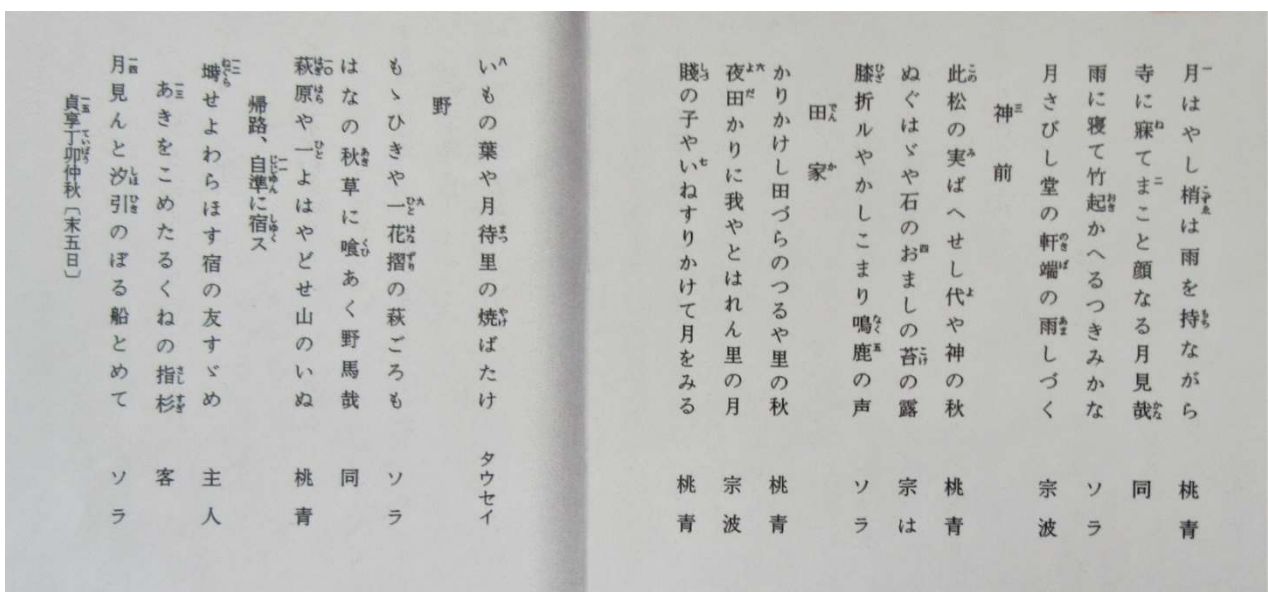 月はやし梢は雨を持ながら 桃青
寺に寐てまこと顔なる月見哉 同
雨に寝て竹起かへるつきみかな ソラ
月さびし堂の軒端の雨しづく 宗波
神前
此松の実ばへせし代や神の秋 桃青
ぬぐはゞや石のおましの苔の露 宗は
膝折ルやかしこまり鳴鹿の声 ソラ
田家
かりかけし田づらのつるや里の秋 桃青
夜田かりに我やとはれん里の月 宗波
賤の子やいねすりかけて月をみる 桃青
いもの葉や月待里の焼ばたけ タウセイ
野
もゝひきや一花摺の萩ごろも ソラ
はなの秋草に喰あく野馬哉 同
萩原や一よはやどせ山のいぬ 桃青
帰路、自準に宿ス
塒せよわらほす宿の友すゞめ 主人
あきをこめたるくねの指杉 客
月見んと汐引のぼる船とめて ソラ
貞享丁卯仲秋〔末五日〕